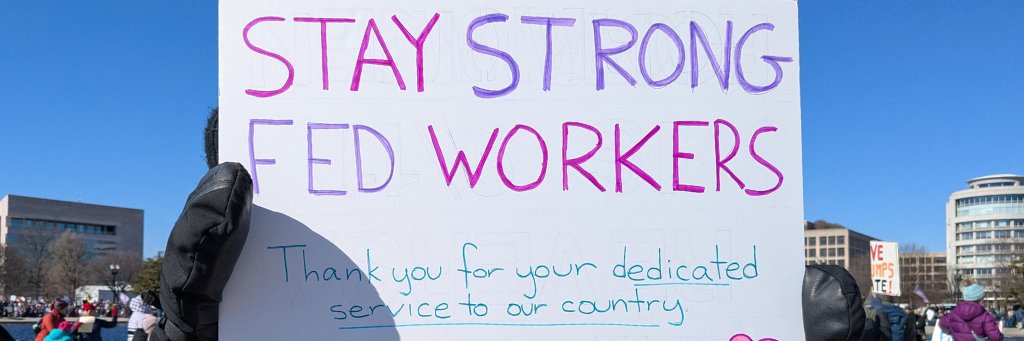 STAY STRONG
FED WORKERS
Thank you for your dedicated
service to our country
VE
UMPS
TE!